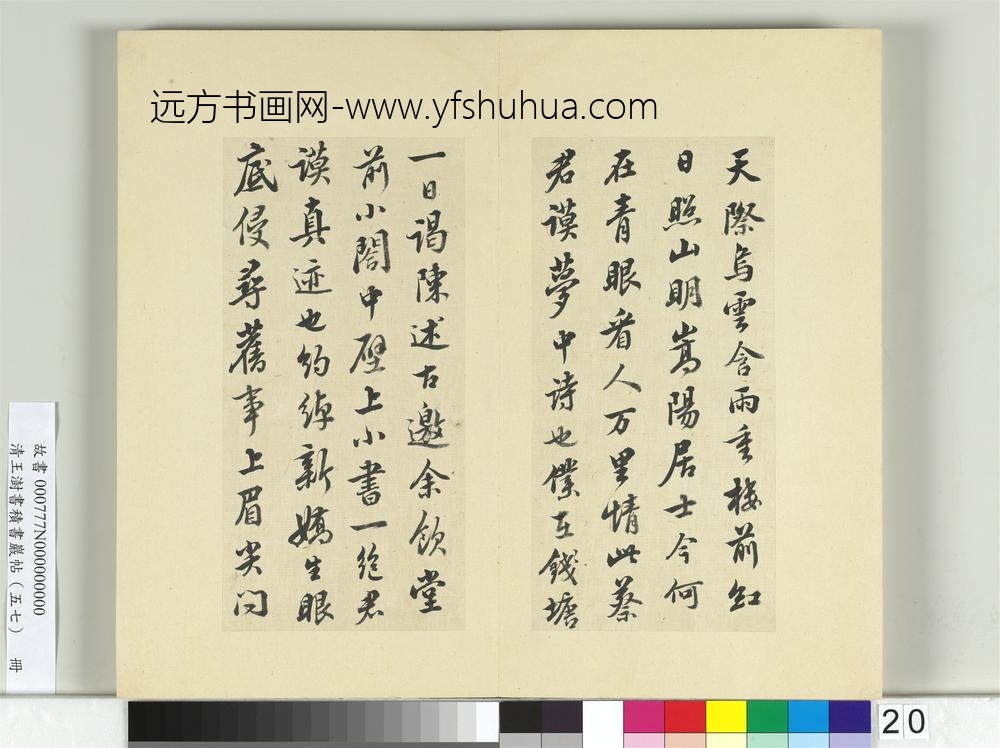 远方书画网-www.yfshuhua.com
天際烏雲含雨重樓前紅
日照山明嵩陽居士今何
在青眼看人万里情此蔡
君謨夢中詩也僕在錢塘
一日謁陳述古邀余飲堂
前小閤中壁上小書一絶君
謨真迹也約綽新嬌生眼
底侵尋舊事上眉尖問
故書 000777N000000000
清王澍書積書巖帖（五七） 冊
20